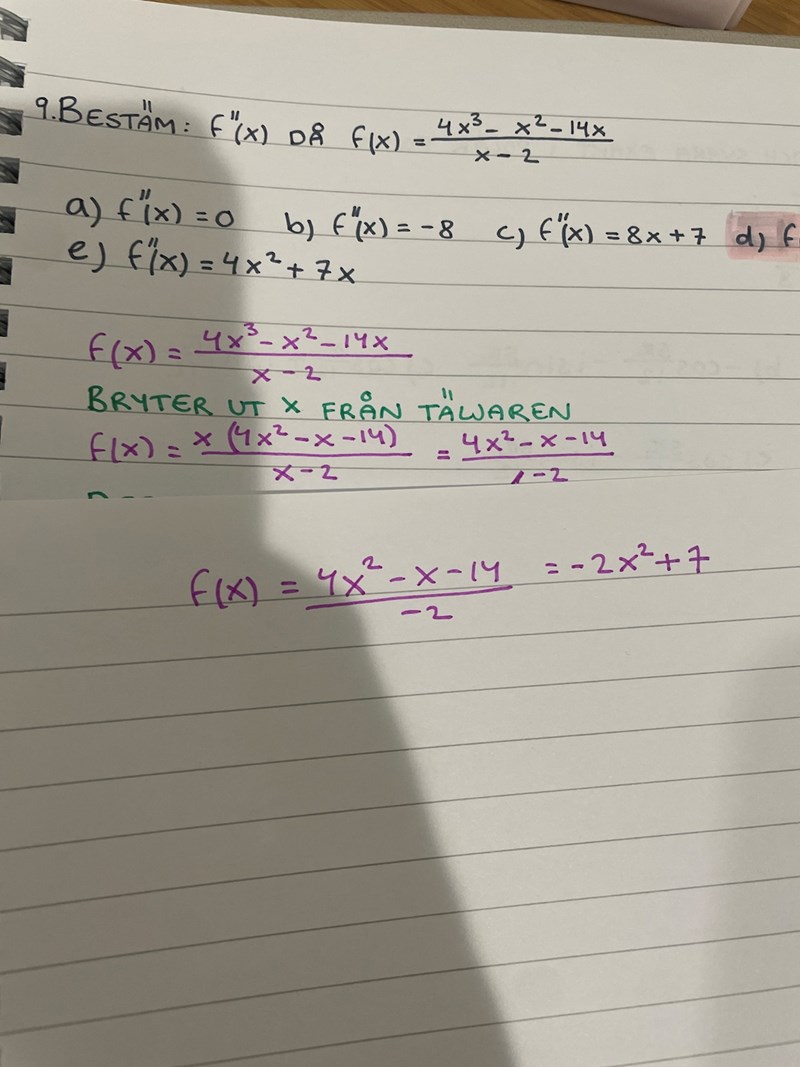 9. BESTÄM: f''(x) DÅ f(x) = (4x³ - x² - 14x)/(x - 2)
a) f''(x) = 0 b) f''(x) = -8 c) f''(x) = 8x + 7 d) f
e) f''(x) = 4x² + 7x
f(x) = (4x³ - x² - 14x)/(x - 2)
BRYTER UT X FRÅN TÄLJAREN
f(x) = x (4x² - x - 14)/(x - 2) = (4x² - x - 14)/( - 2)
f(x) = (4x² - x - 14)/(-2) = -2x² + 7